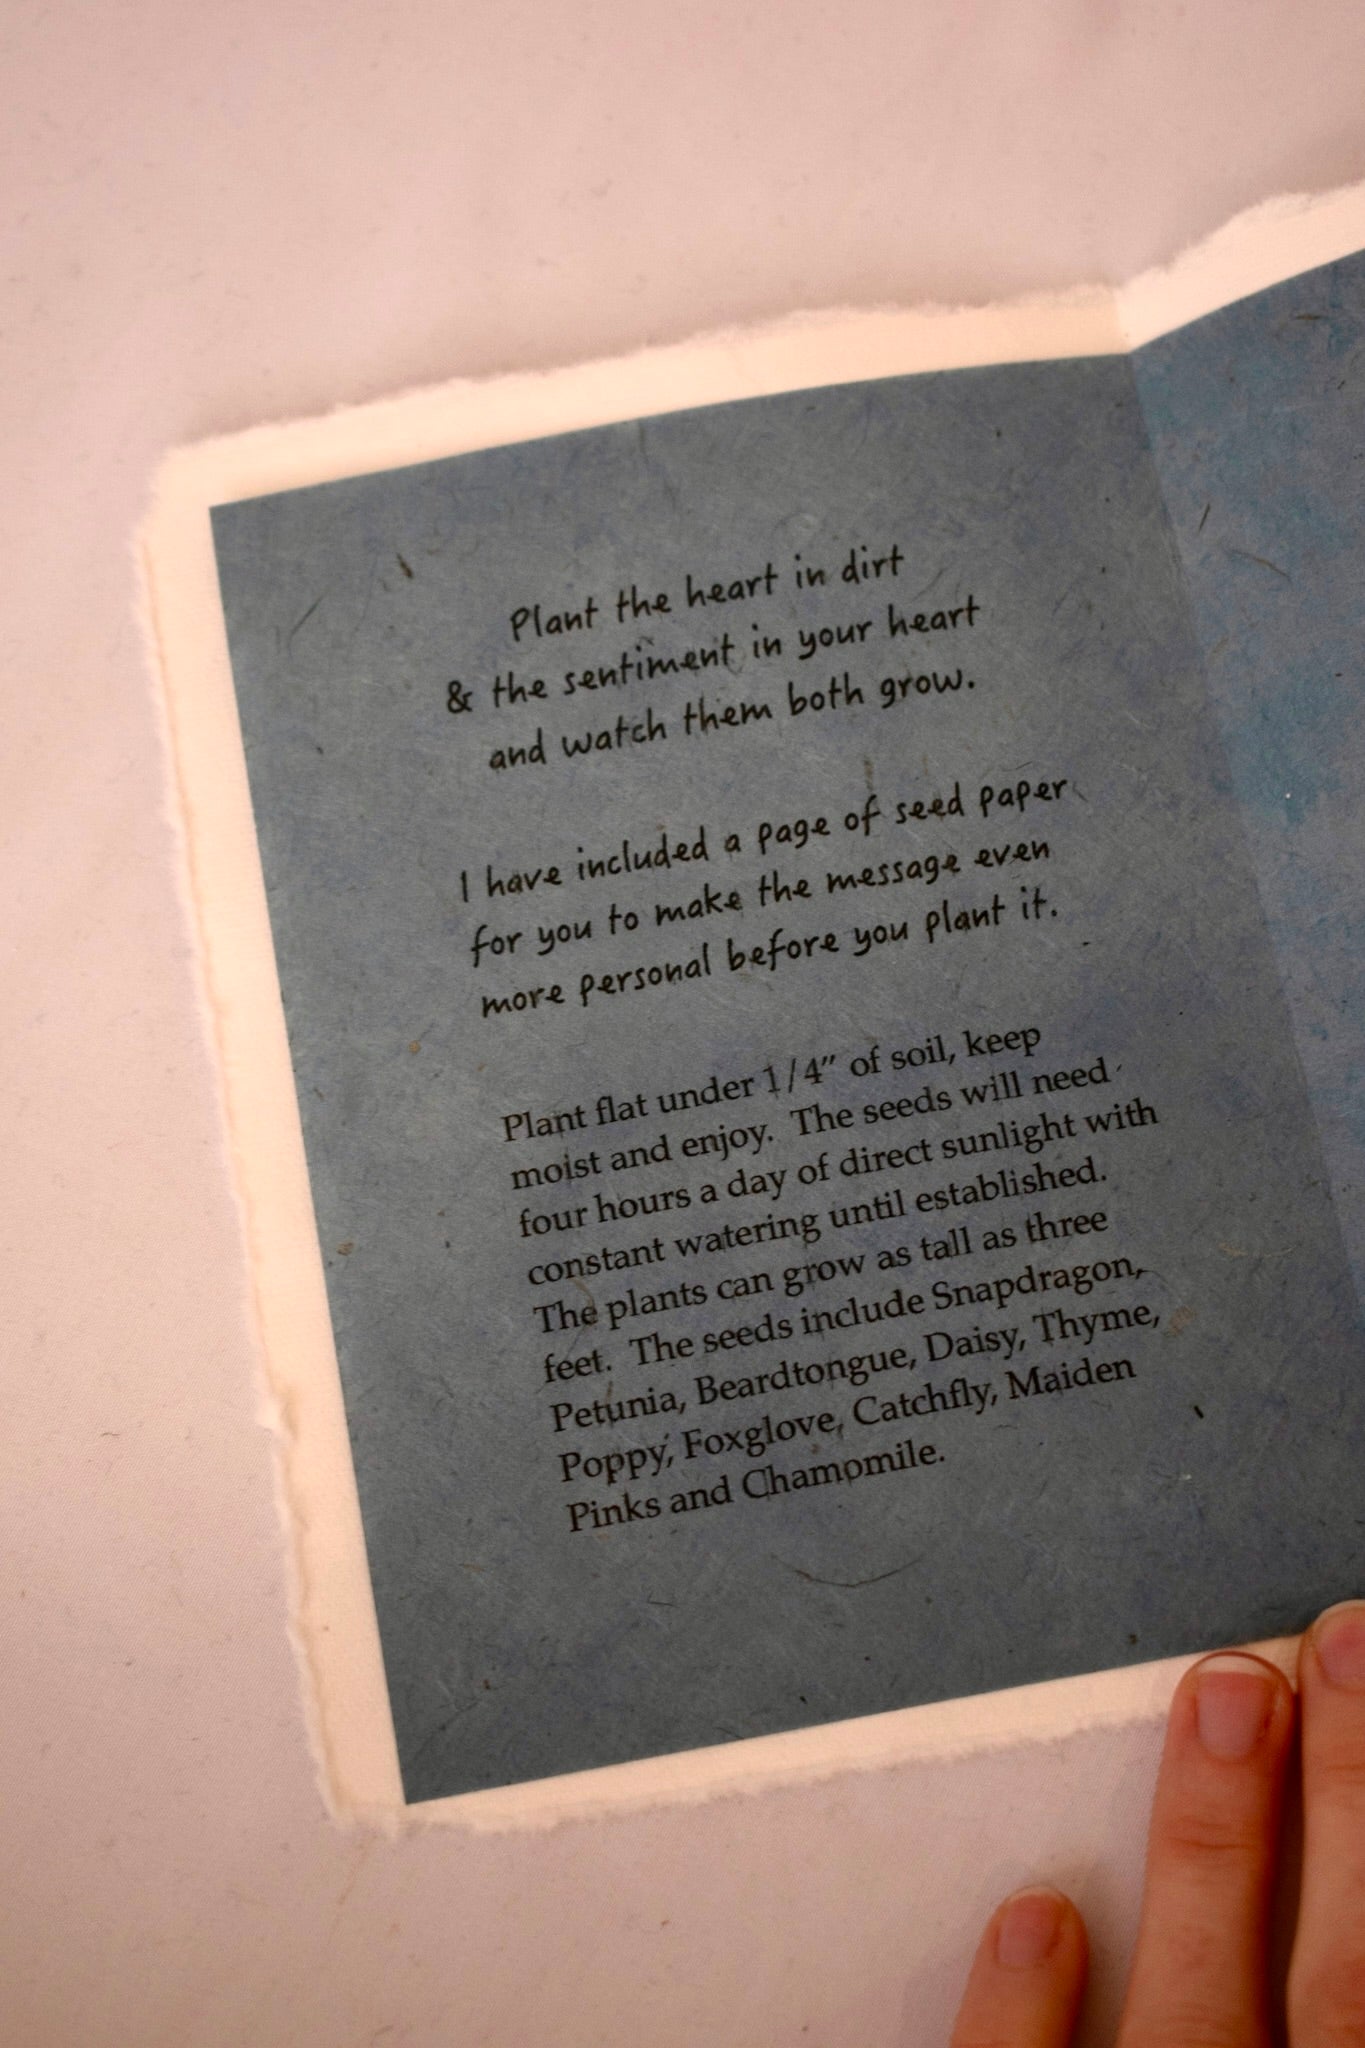 Plant the heart in dirt
& the sentiment in your heart
and watch them both grow.
I have included a page of seed paper
for you to make the message even
more personal before you plant it.
Plant flat under 1/4" of soil, keep
moist and enjoy. The seeds will need
four hours a day of direct sunlight with
constant watering until established.
The plants can grow as tall as three
feet. The seeds include Snapdragon,
Petunia, Beardtongue, Daisy, Thyme,
Poppy, Foxglove, Catchfly, Maiden
Pinks and Chamomile.